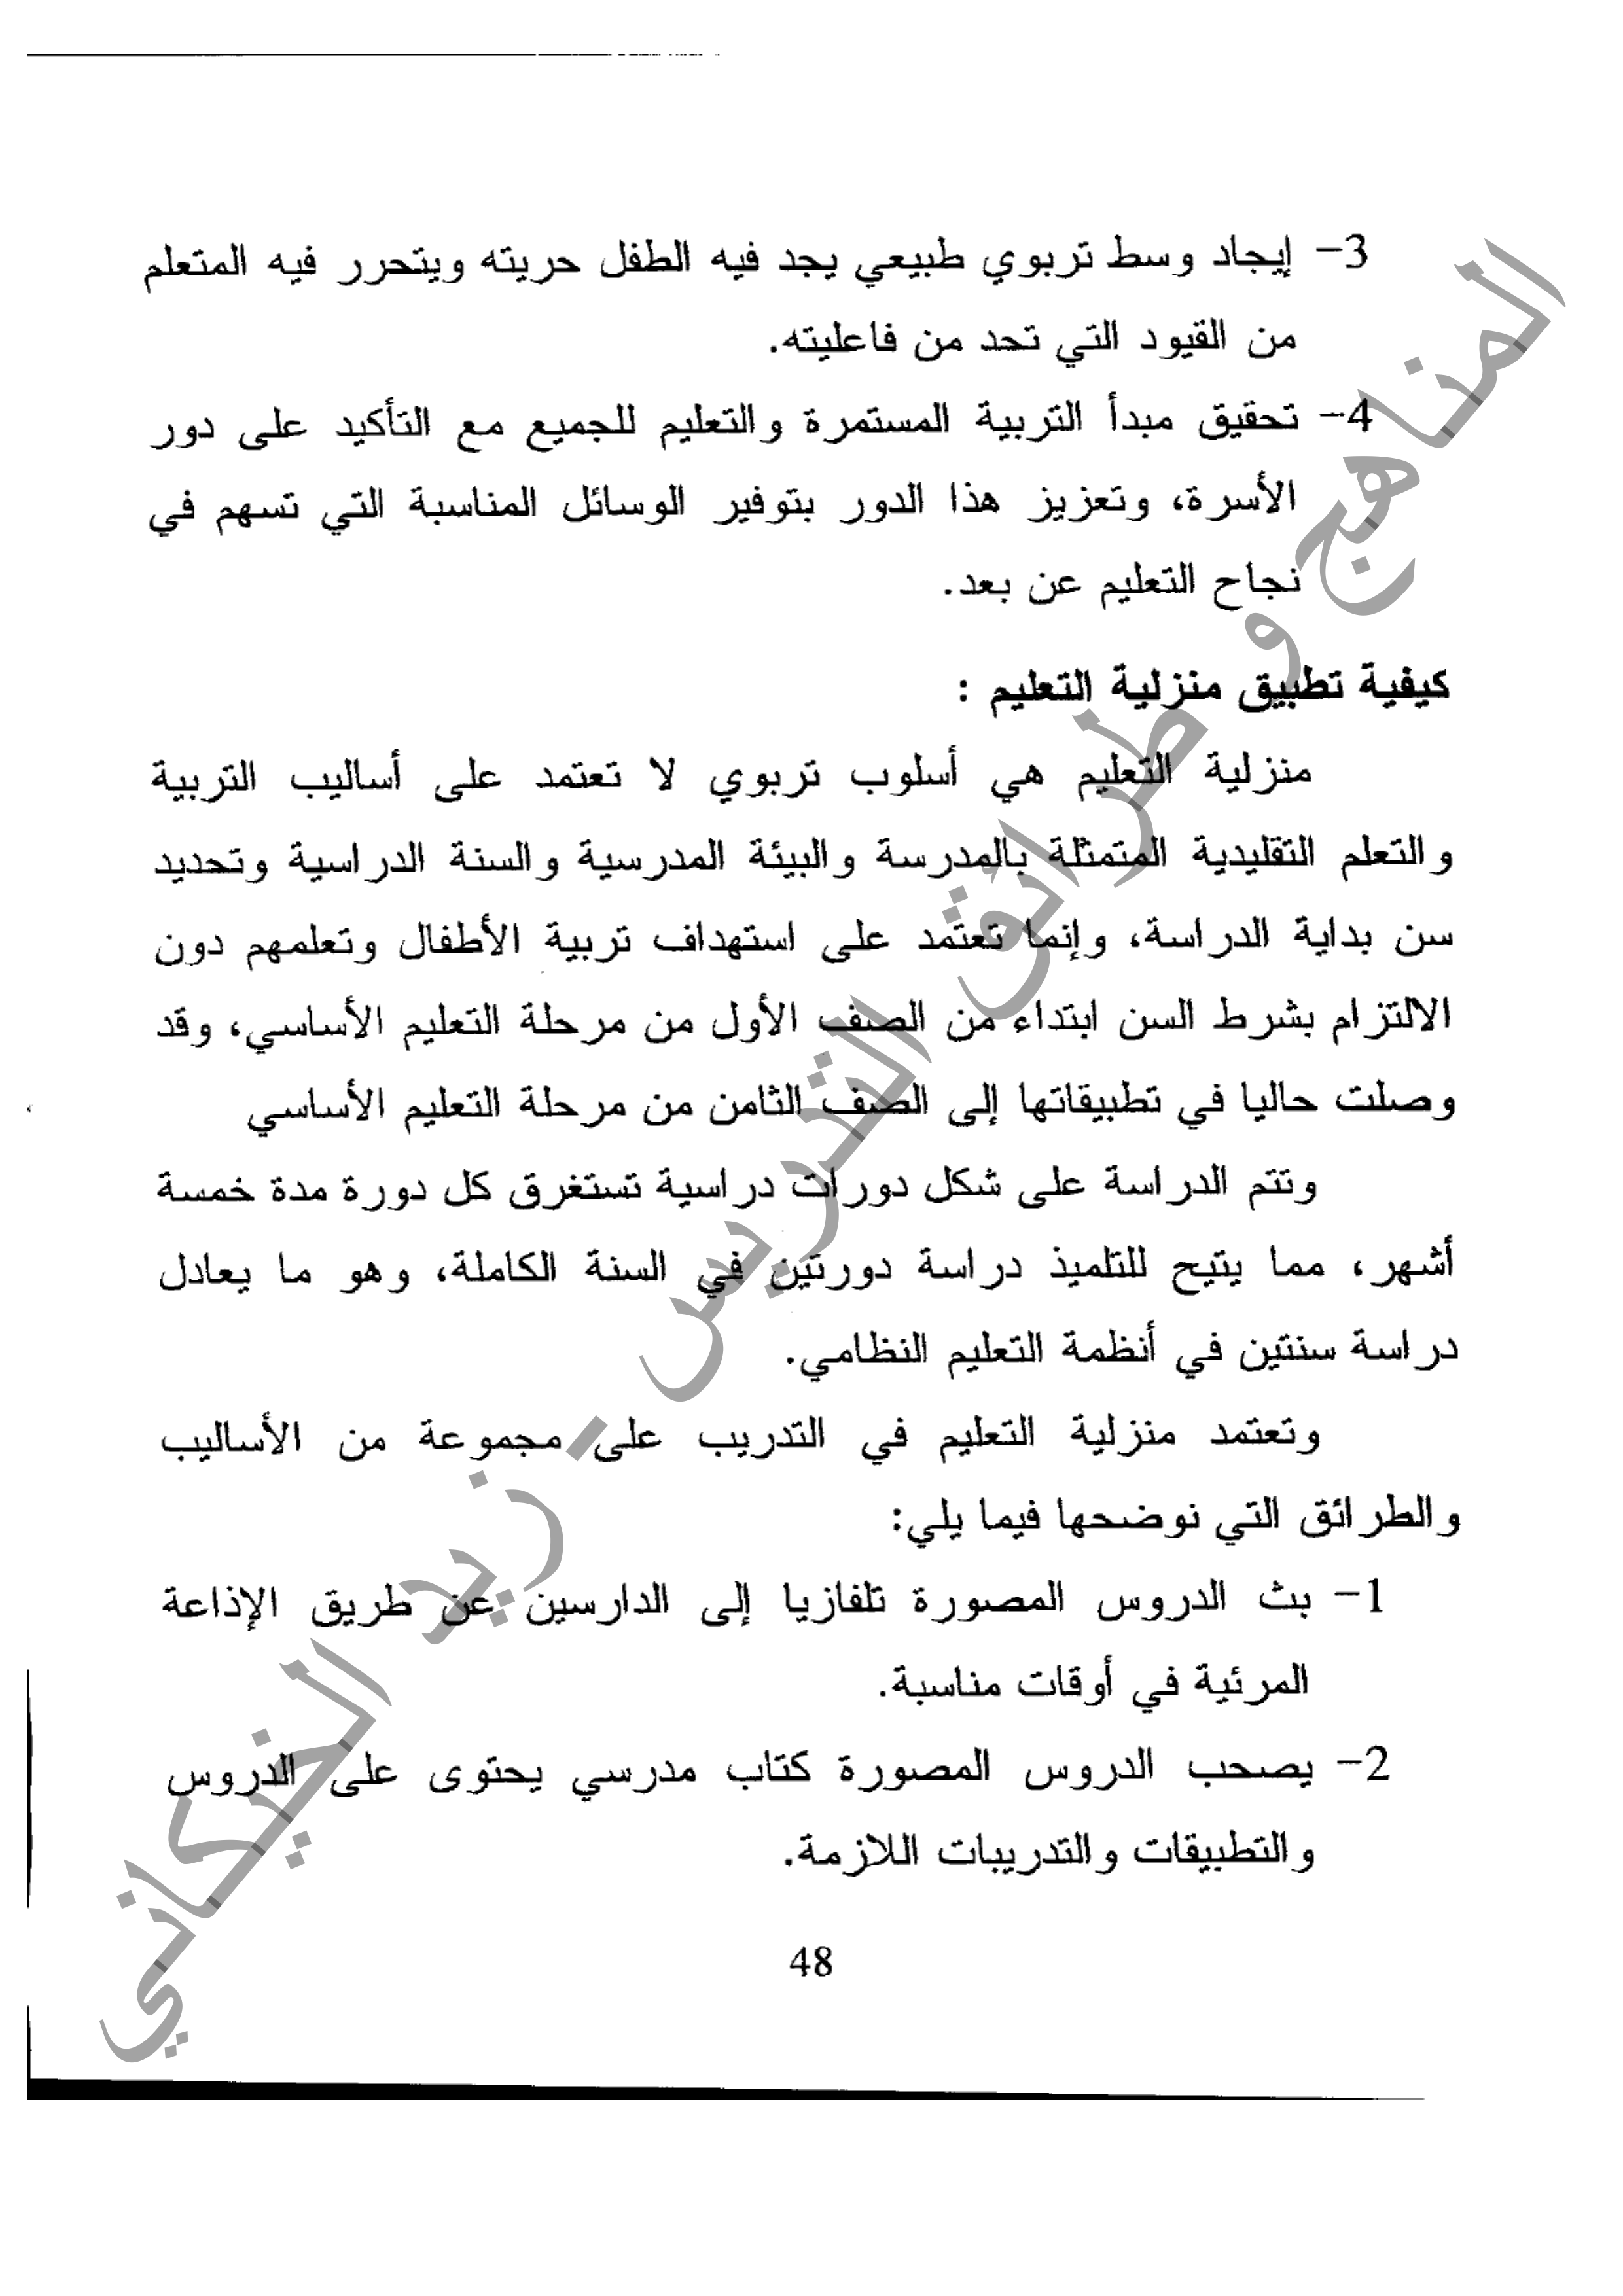 3- إيجاد وسط تربوي طبيعي يجد فيه الطفل حريته ويتحرر فيه المتعلم
من القيود التي تحد من فاعليته.
4- تحقيق مبدأ التربية المستمرة والتعليم للجميع مع التأكيد على دور
الأسرة، وتعزيز هذا الدور بتوفير الوسائل المناسبة التي تسهم في
نجاح التعليم عن بعد.
كيفية تطبيق منزلية التعليم :
منزلية التعليم هي أسلوب تربوي لا تعتمد على أساليب التربية
والتعلم التقليدية المتمثلة بالمدرسة والبيئة المدرسية والسنة الدراسية وتحديد
سن بداية الدراسة، وإنما تعتمد على استهداف تربية الأطفال وتعلمهم دون
الالتزام بشرط السن ابتداء من الصف الأول من مرحلة التعليم الأساسي، وقد
وصلت حاليا في تطبيقاتها إلى الصف الثامن من مرحلة التعليم الأساسي
وتتم الدراسة على شكل دورات دراسية تستغرق كل دورة مدة خمسة
أشهر، مما يتيح للتلميذ دراسة دورتين في السنة الكاملة، وهو ما يعادل
دراسة سنتين في أنظمة التعليم النظامي.
وتعتمد منزلية التعليم في التدريب على مجموعة من الأساليب
والطرائق التي نوضحها فيما يلي:
1- بث الدروس المصورة تلفازيا إلى الدارسين عن طريق الإذاعة
المرئية في أوقات مناسبة.
2- يصحب الدروس المصورة كتاب مدرسي يحتوى على الدروس
والتطبيقات والتدريبات اللازمة.
48
المناهج و طرائق التدريس - زيد الخيكاني